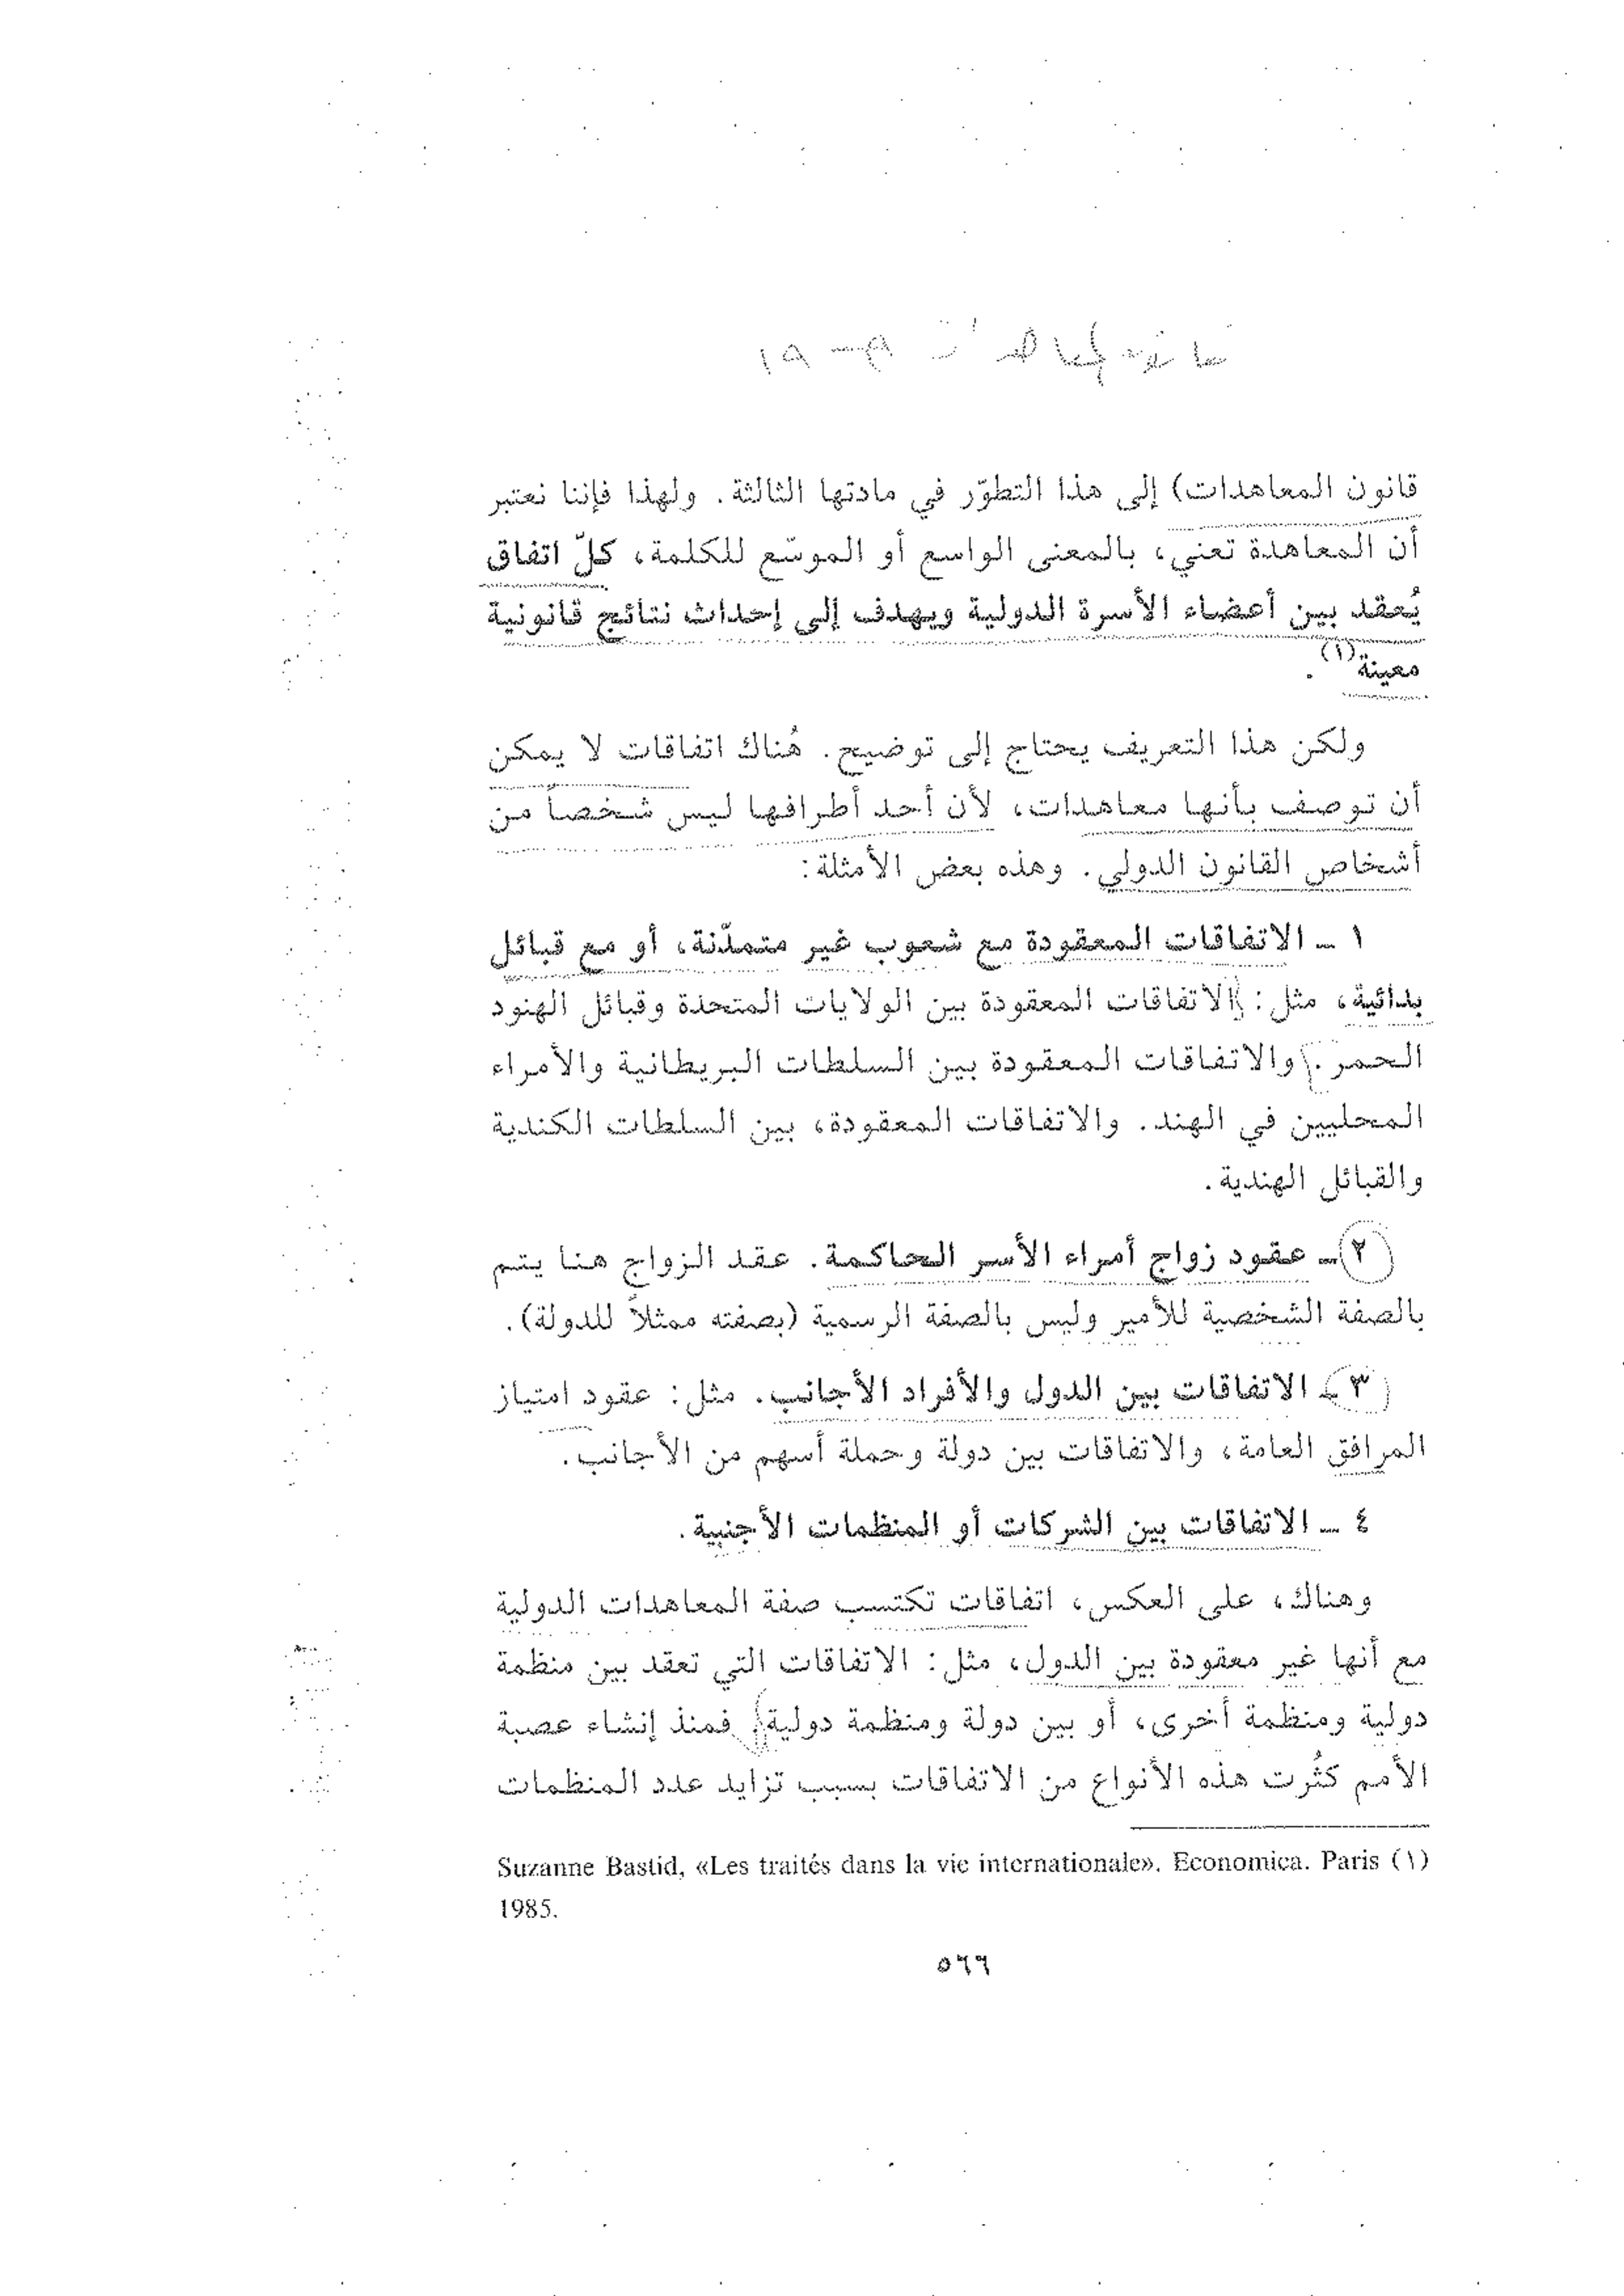 قانون المعاهدات) إلى هذا التطوّر في مادتها الثالثة. ولهذا فإننا نعتبر
أن المعاهدة تعني، بالمعنى الواسع أو الموسّع للكلمة، كلّ اتفاق
يُعقد بين أعضاء الأسرة الدولية ويهدف إلى إحداث نتائج قانونية
معينة(١).
ولكن هذا التعريف يحتاج إلى توضيح. هُناك اتفاقات لا يمكن
أن توصف بأنها معاهدات، لأن أحد أطرافها ليس شخصاً من
أشخاص القانون الدولي. وهذه بعض الأمثلة:
١ ـ الاتفاقات المعقودة مع شعوب غير متمدّنة، أو مع قبائل
بدائية، مثل: الاتفاقات المعقودة بين الولايات المتحدة وقبائل الهنود
الحمر. والاتفاقات المعقودة بين السلطات البريطانية والأمراء
المحليين في الهند. والاتفاقات المعقودة، بين السلطات الكندية
والقبائل الهندية.
٢ ـ عقود زواج أمراء الأسر الحاكمة. عقد الزواج هنا يتم
بالصفة الشخصية للأمير وليس بالصفة الرسمية (بصفته ممثلاً للدولة).
٣ ـ الاتفاقات بين الدول والأفراد الأجانب. مثل: عقود امتياز
المرافق العامة، والاتفاقات بين دولة وحملة أسهم من الأجانب.
٤ ـ الاتفاقات بين الشركات أو المنظمات الأجنبية.
وهناك، على العكس، اتفاقات تكتسب صفة المعاهدات الدولية
مع أنها غير معقودة بين الدول، مثل: الاتفاقات التي تعقد بين منظمة
دولية ومنظمة أخرى، أو بين دولة ومنظمة دولية. فمنذ إنشاء عصبة
الأمم كثُرت هذه الأنواع من الاتفاقات بسبب تزايد عدد المنظمات
Suzanne Bastid, «Les traités dans la vie internationale». Economica. Paris (١)
1985.
٥٦٦